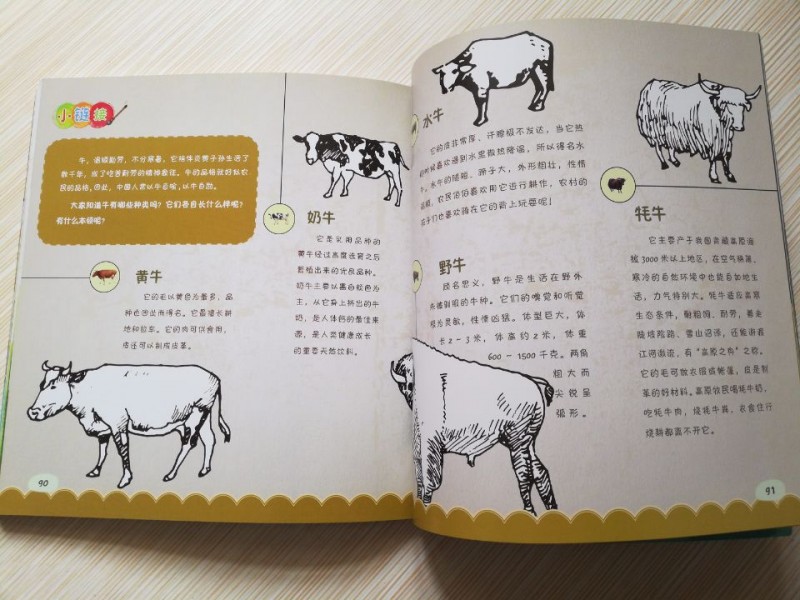 小链接
牛，温顺勤劳，不分寒暑，它随华夏儿子孙生活了
数千年，成了吃苦耐劳的精神象征。牛的品格就好似农
民的品格，因此，中国人常以牛自喻，以牛自励。
大家知道牛有哪些种类吗？它们各自长什么样呢？
有什么本领呢？
黄牛
它的毛以黄色为最多，品
种也因此而得名。它最擅长耕
地和拉车。它的肉可供食用，
皮还可以制成皮革。
奶牛
它是乳用品种的
黄牛经过高度选育之后
繁殖出来的优良品种。
奶牛主要以黑白较色为
主，从它身上挤出的牛
奶，是人体钙的最佳来
源，是人类健康成长
的重要天然饮料。
90
水牛
它的皮非常厚，汗腺极不发达，当它热
的时候喜欢浸到水里散热降温，所以得名水
牛。水牛的脑袋、蹄子大，外形粗壮，性情
温顺，农民伯伯喜欢用它进行耕作，农村的
孩子们也喜欢骑在它的背上玩耍呢！
野牛
顾名思义，野牛是生活在野外
而遭到眼的牛种。它们的嗅觉和听觉
极为灵敏，性情凶猛。体型巨大，体
长2－3米，体高约2米，体重
600－1500千克。两角
粗大而
尖锐呈
弧形。
牦牛
它主要产于我国青藏高原海
拔3000米以上地区，在空气稀薄、
寒冷的自然环境中也能自如地生
活，力气特别大。牦牛适应高寒
生态条件，耐粗饲、耐劳，善走
陡坡险路、雪山沼泽，还能游渡
江河激流，有“高原之舟”之称。
它的毛可做衣服或帐篷，皮是制
革的好材料。高原牧民喝牦牛奶，
吃牦牛肉，烧牦牛粪，衣食住行
烧耕都离不开它。
91